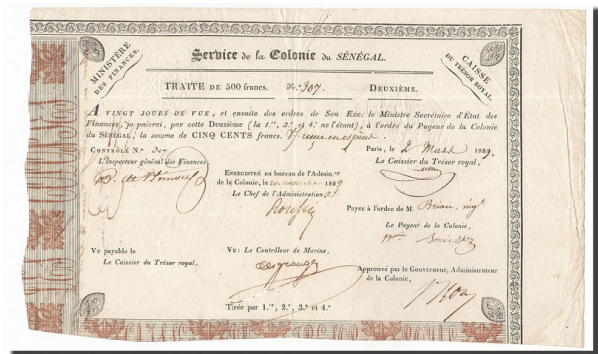 MINISTÈRE
DES FINANCES.
Service de la Colonie du SÉNÉGAL.
CAISSE
DU TRÉSOR ROYAL.
TRAITE DE 500 francs. N.° 307. DEUXIÈME.
A VINGT JOURS DE VUE, et ensuite des ordres de Son Exc. le Ministre Secrétaire d'État des
Finances, je paierai, par cette Deuxième (la 1.re, 3.e et 4.e ne l'étant), à l'ordre du Payeur de la Colonie
du SÉNÉGAL, la somme de CINQ CENTS francs.
CONTRÔLE N.° 307
Paris, le 2 Mars 1829.
L'Inspecteur général des Finances,
Le Caissier du Trésor royal,
ENREGISTRÉ au bureau de l'Admin.on
de la Colonie, le 1829
Le Chef de l'Administration
Payez à l'ordre de M. Brian, nég.t
Le Payeur de la Colonie,
VU payable le
Le Caissier du Trésor royal,
VU : Le Contrôleur de Marine,
Approuvé par le Gouverneur, Administrateur
de la Colonie,
Tirée par 1.re, 2.e, 3.e et 4.e